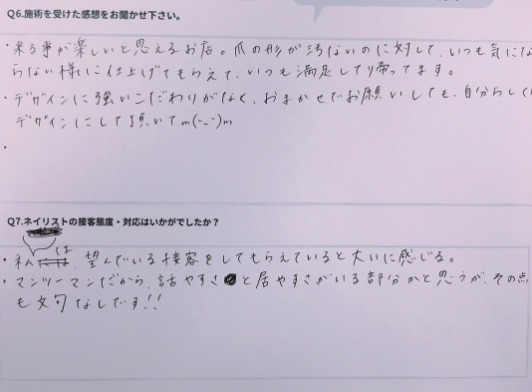 Q6.施術を受けた感想をお聞かせ下さい。
・来る事が楽しいと思えるお店。爪の形が汚ないのに対して、いつも気にな
らない様に仕上げてもらえて、いつも満足して帰ってます。
・デザインに強いこだわりがなく、おまかせでお願いしても、自分らしく
デザインにして頂いてm(-_-)m
・
Q7.ネイリストの接客態度・対応はいかがでしたか？
は
・私 、望んでいる接客をしてもらえていると大いに感じる。
・マンツーマンだから、話やすさと居やすさがいる部分かと思うが、その点
も文句なしです!!